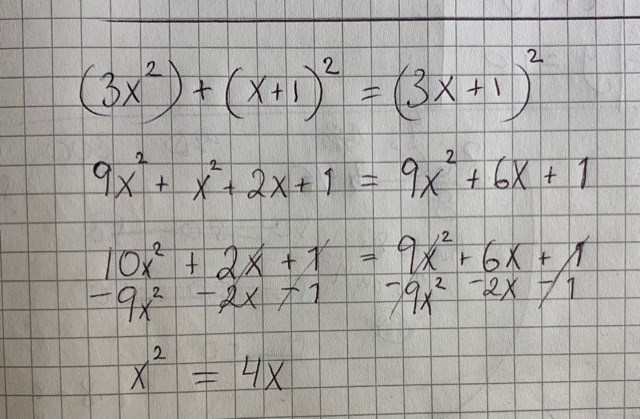 (3x²) + (x+1)² = (3x+1)²
9x² + x² + 2x + 1 = 9x² + 6x + 1
10x² + 2x + 1 = 9x² + 6x + 1
-9x² -2x -1 -9x² -2x -1
x² = 4x